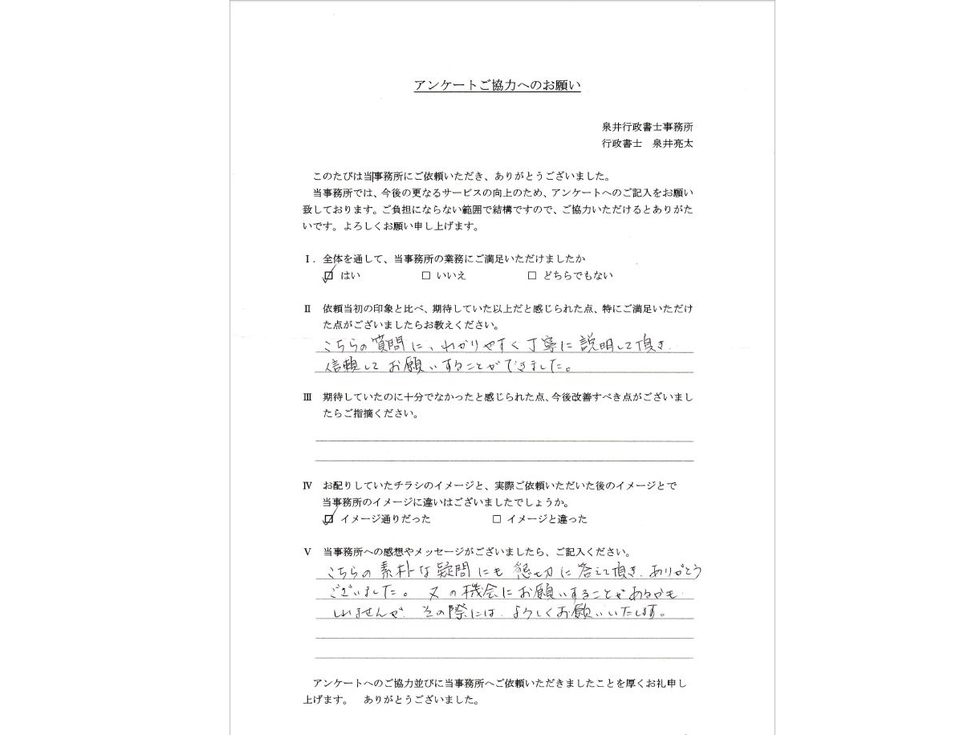 アンケートご協力へのお願い
泉井行政書士事務所
行政書士　泉井亮太
このたびは当事務所にご依頼いただき、ありがとうございました。
当事務所では、今後の更なるサービスの向上のため、アンケートへのご記入をお願い
致しております。ご負担にならない範囲で結構ですので、ご協力いただけるとありがた
いです。よろしくお願い申し上げます。
Ⅰ．全体を通して、当事務所の業務にご満足いただけましたか
☑ はい　□ いいえ　□ どちらでもない
Ⅱ　依頼当初の印象と比べ、期待していた以上だと感じられた点、特にご満足いただけ
た点がございましたらお教えください。
こちらの質問に、わかりやすく丁寧に説明して頂き、
信頼してお願いすることができました。
Ⅲ　期待していたのに十分でなかったと感じられた点、今後改善すべき点がございまし
たらご指摘ください。
Ⅳ　お配りしていたチラシのイメージと、実際ご依頼いただいた後のイメージとで
当事務所のイメージに違いはございましたでしょうか。
☑ イメージ通りだった　□ イメージと違った
Ⅴ　当事務所への感想やメッセージがございましたら、ご記入ください。
こちらの素朴な疑問にも懇切に答えて頂き、ありがとう
ございました。又の機会にお願いすることがあるかも
しれませんが、その際には、よろしくお願いいたします。
アンケートへのご協力並びに当事務所へご依頼いただきましたことを厚くお礼申し
上げます。　ありがとうございました。